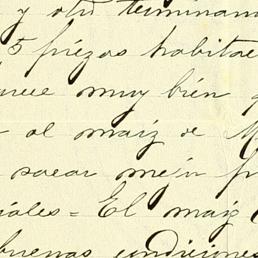 y otro terminan
5 piezas habita
muy bien
al maiz de M
sacar mejor
iales = El maiz
buenas condiciones